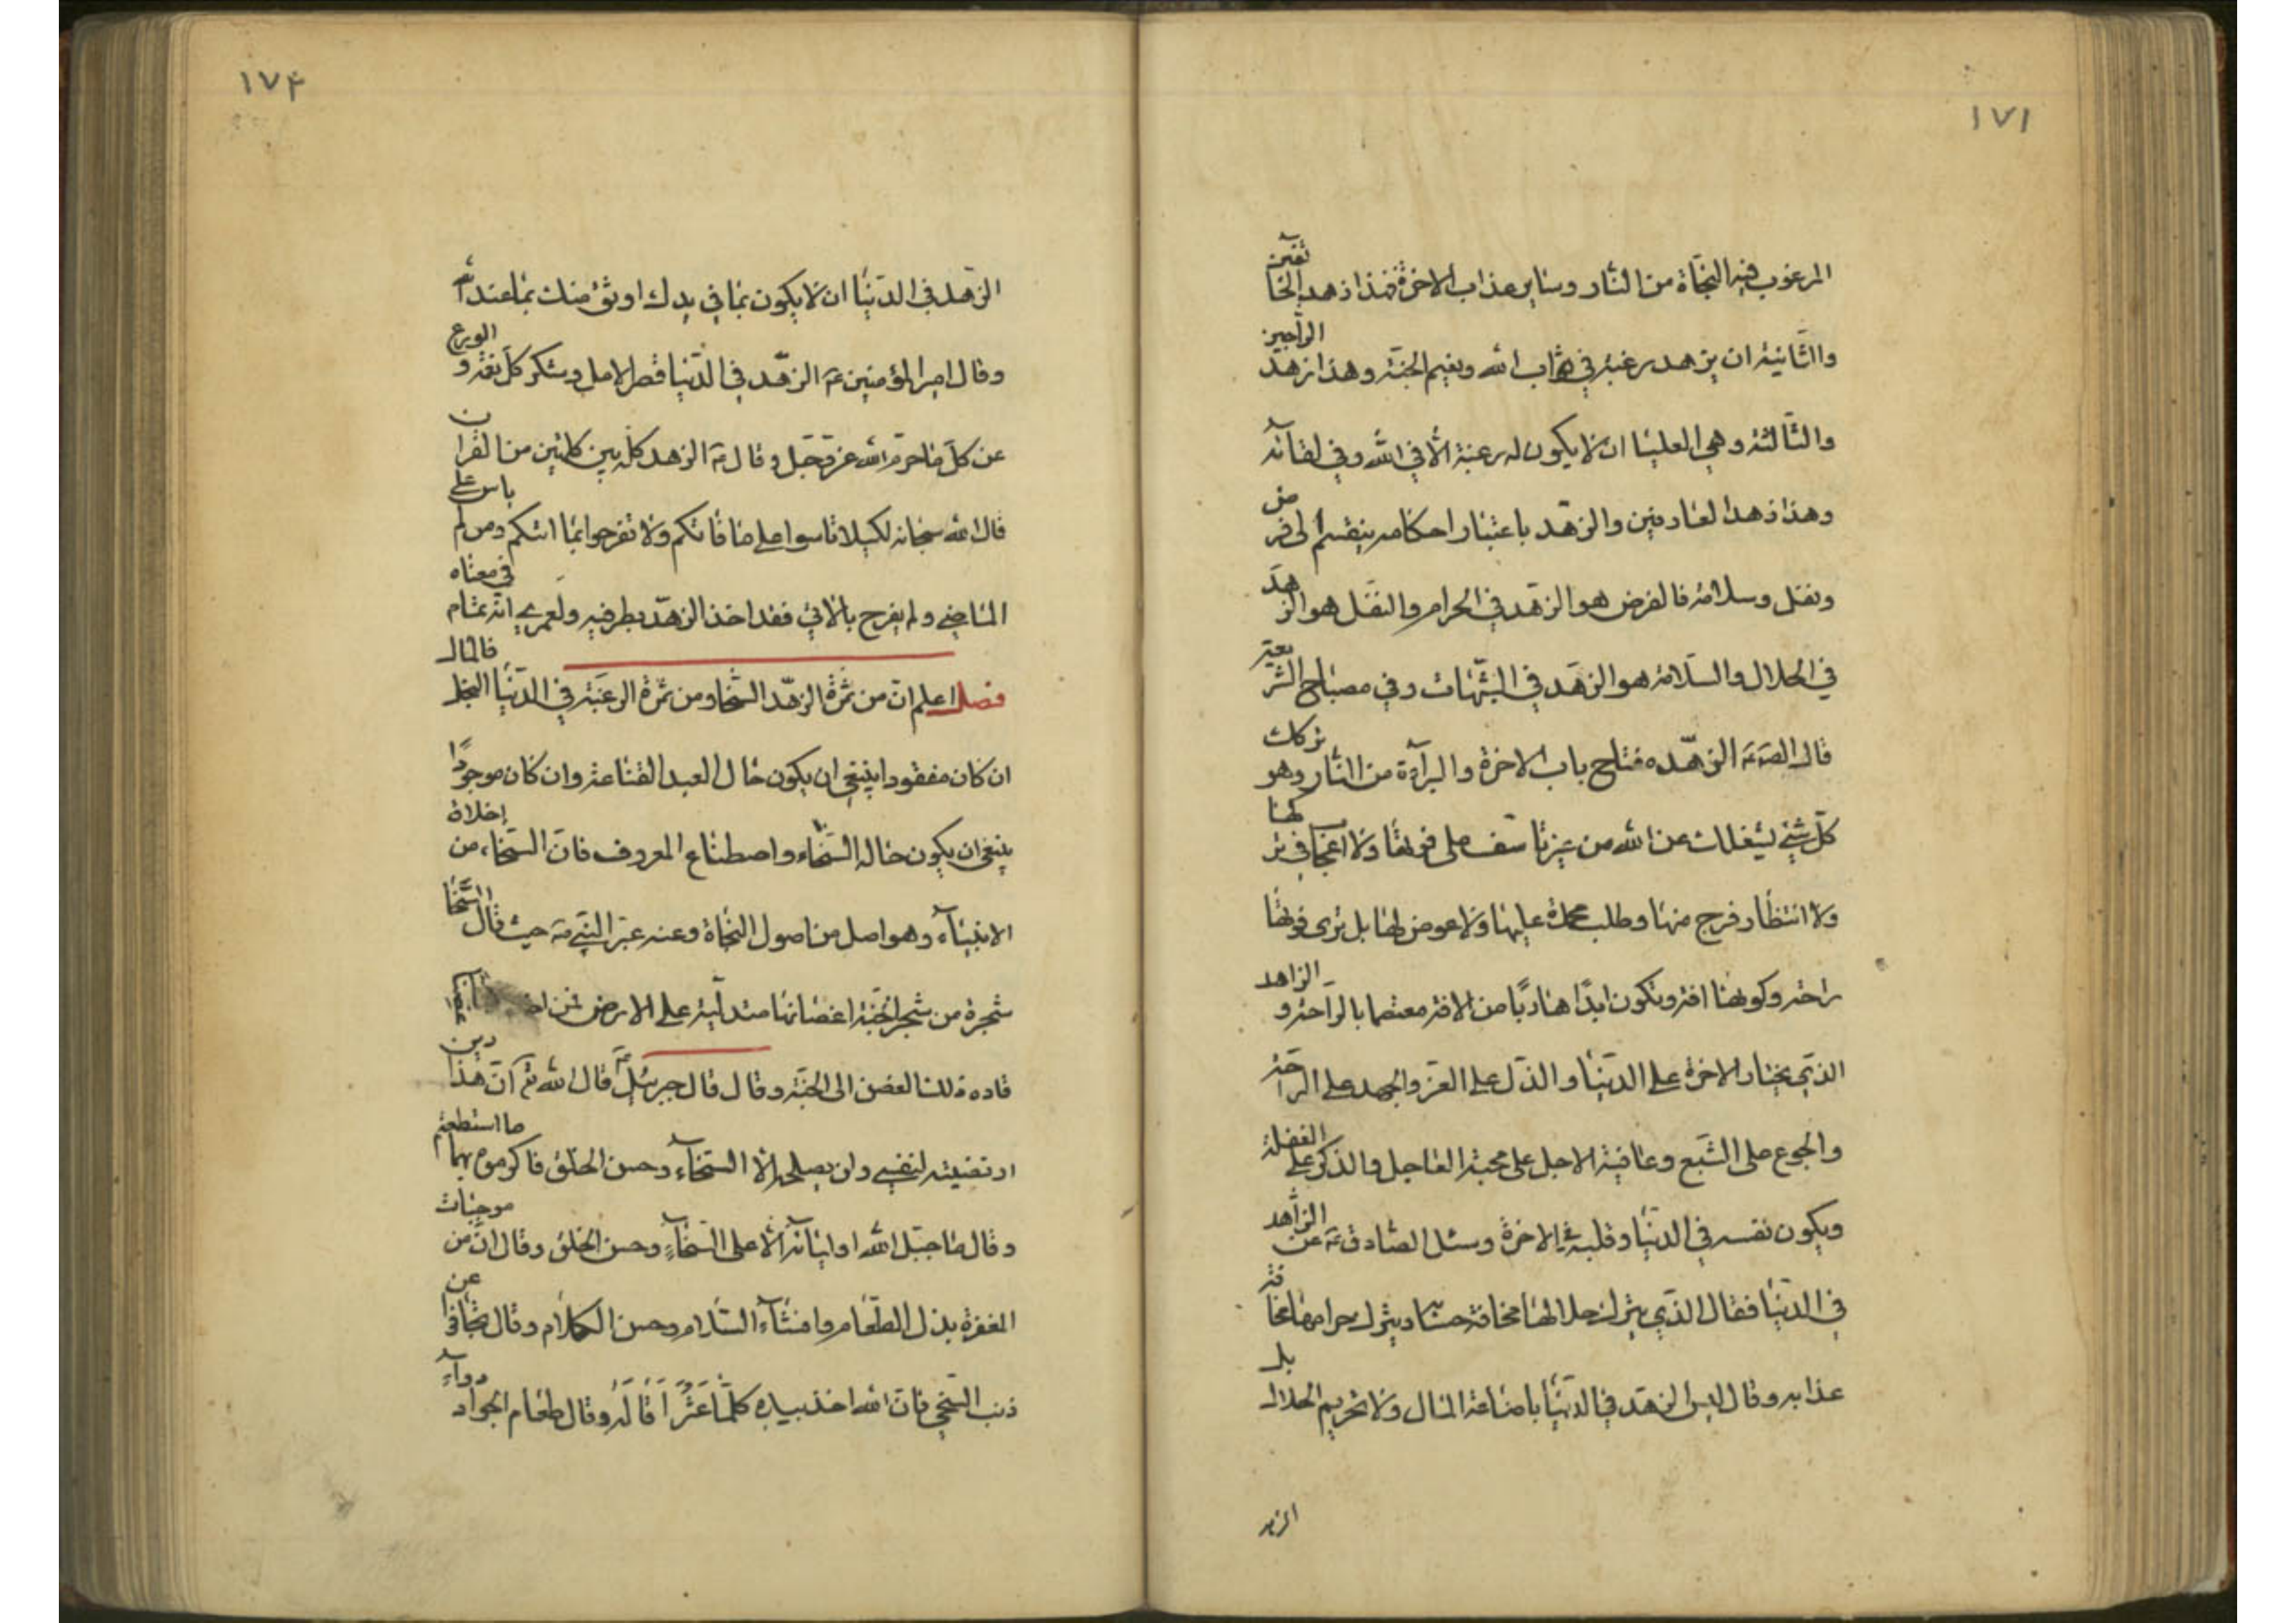 ١٧١
المرغوب فيه النجاة من النار وساير عذاب الاخرة فهذا زهد الخائفين
والثانية ان يزهد رغبة في ثواب الله ونعيم الجنة وهذا زهد الراجين
والثالثة وهي العليا ان لا يكون له رغبة الا في الله وفي لقائه
وهذا زهد العارفين والزهد باعتبار احكامه ينقسم الى فرض
ونفل وسلامة فالفرض هو الزهد في الحرام والنفل هو الزهد
في الحلال والسلامة هو الزهد في الشبهات وفي مصباح الشريعة
قال الصه عه الزهد مفتاح باب الاخرة والبرآءة من النار وهو تركك
كل شيء يشغلك عن الله من غير تأسف على فوتها ولا اعجاب في تركها
ولا انتظار فرج منها وطلب محمدة عليها ولا عوض لها بل ترى فوتها
راحة وكونها افة وتكون ابدًا هاربًا من الافة معتصما بالراحة والزاهد
الذي يختار الاخرة على الدنيا والذل على العز والجهد على الراحة
والجوع على الشبع وعافية الاجل على محبة العاجل والذكر على الغفلة
ويكون نفسه في الدنيا وقلبه في الاخرة وسئل الصادق عه عن الزاهد
في الدنيا فقال الذي يترك حلالها مخافة حسابه ويترك حرامها مخافة
عذابه وقال ليس الزهد في الدنيا باضاعة المال ولا تحريم الحلال بل
الزهد
١٧٤
الزهد في الدنيا ان لا يكون بما في يدك اوثق منك بما عند الله
وقال امير المؤمنين عه الزهد في الدنيا قصر الامل وشكر كل نعمة والورع
عن كل ما حرم الله عز وجل وقال عه الزهد كله بين كلمتين من القران
قال الله سبحانه لكيلا تاسوا على ما فاتكم ولا تفرحوا بما اتيكم ومن لم ياس على
الماضي ولم يفرح بالاتي فقد اخذ الزهد بطرفيه ولعمري انه تمام في معناه
فصل اعلم ان من ثمرة الزهد السخا ومن ثمرة الرغبة في الدنيا البخل فالمال
ان كان مفقودا ينبغي ان يكون حال العبد القناعة وان كان موجودًا
ينبغي ان يكون حاله السخاء واصطناع المعروف فان السخاء من اخلاق
الانبيآء وهو اصل من اصول النجاة وعنه عبر النبي صه حيث قال السخا
شجرة من شجر الجنة اغصانها متدلية على الارض فمن اخذ
قاده ذلك الغصن الى الجنة وقال قال جبرئيل عه قال الله تع ان هذا دين
ارتضيته لنفسي ولن يصلحه الا السخآء وحسن الخلق فاكرموه بهما ما استطعتم
وقال ما جبل الله اوليائه الا على السخآءِ وحسن الخلق وقال ان من موجبات
المغفرة بذل الطعام وافشآء السلام وحسن الكلام وقال تجافوا عن
ذنب السخي فان الله اخذ بيده كلما عثر اقاله وقال طعام الجواد دوآء